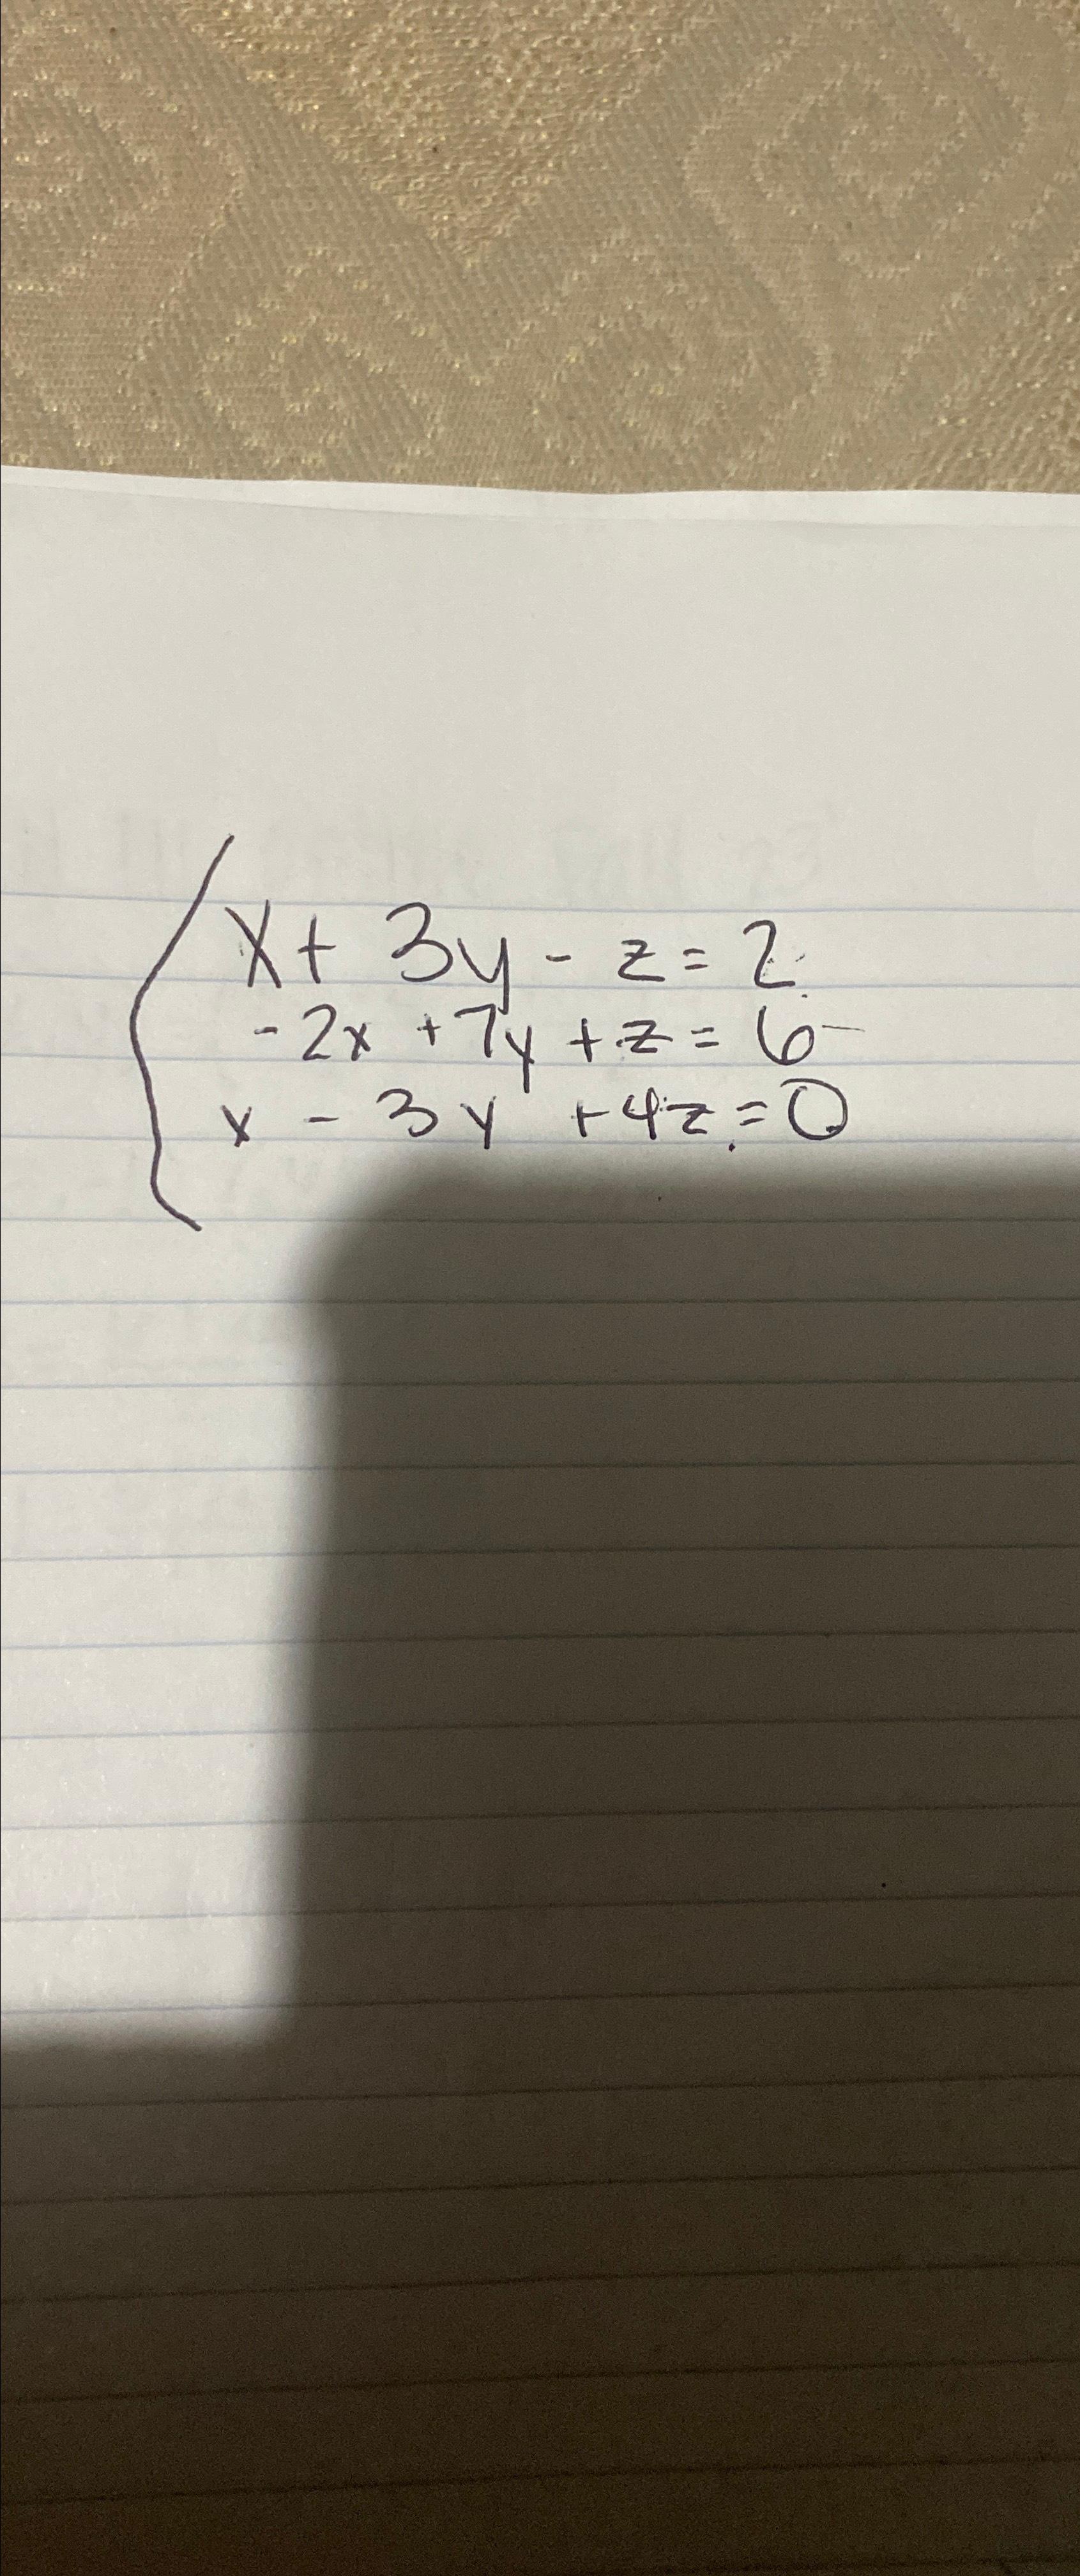 x + 3y - z = 2
-2x + 7y + z = 6
x - 3y + 4z = 0